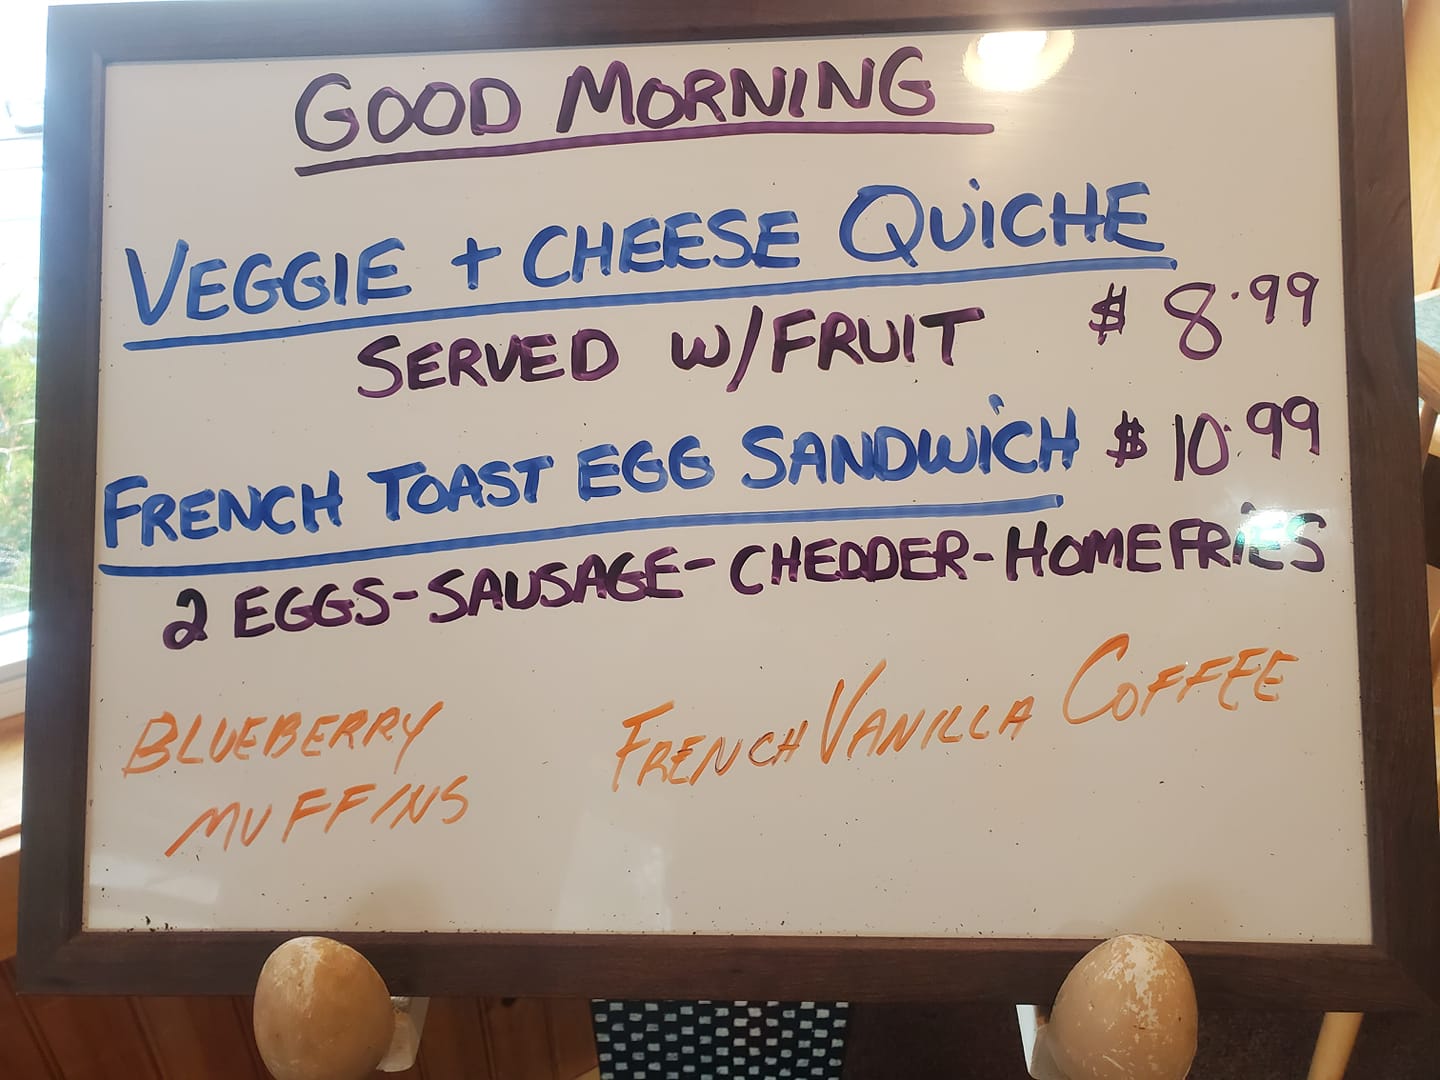 GOOD MORNING
VEGGIE + CHEESE QUICHE
SERVED W/FRUIT $ 8.99
FRENCH TOAST EGG SANDWICH $ 10.99
2 EGGS-SAUSAGE-CHEDDER-HOMEFRIES
BLUEBERRY
MUFFINS
FRENCH VANILLA COFFEE